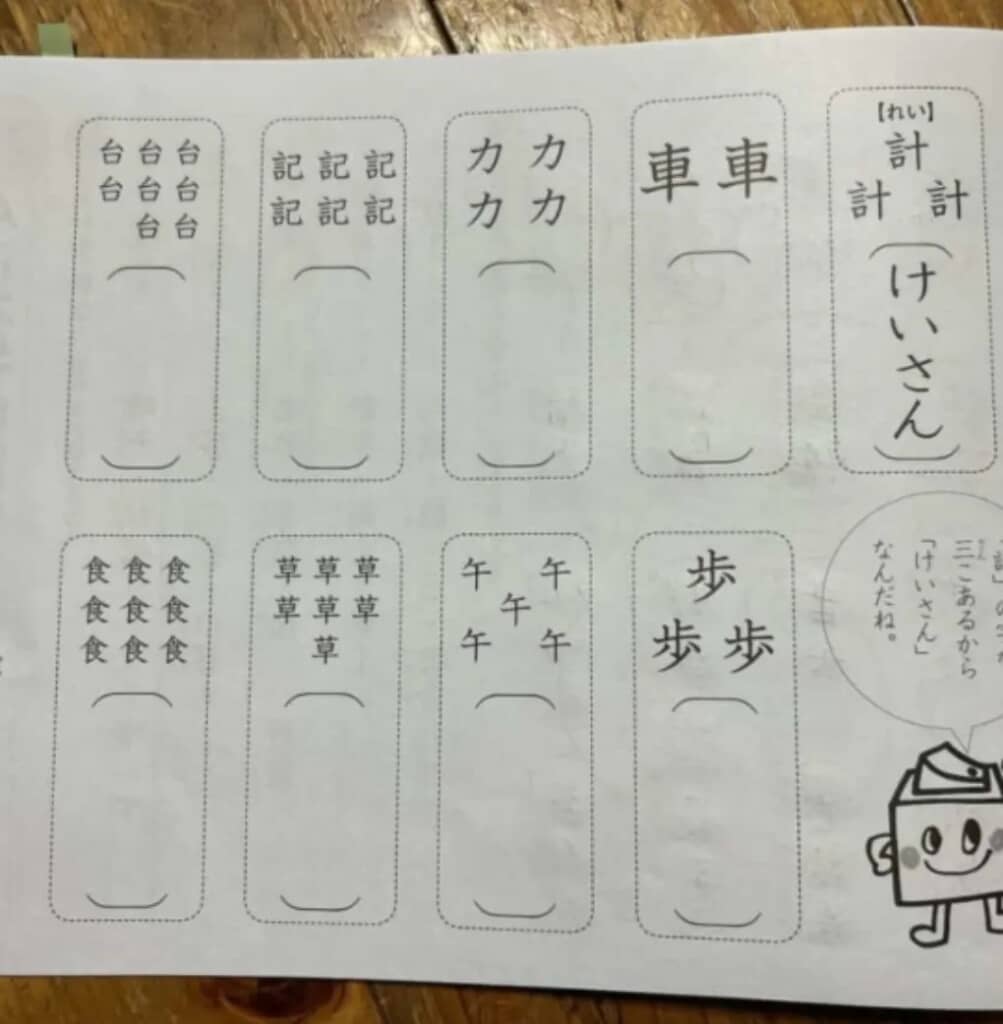 【れい】
計
計 計
けいさん
車 車
力 力
力 力
記 記 記
記 記 記
台 台 台
台 台 台
台 台
三こあるから
「けいさん」
なんだね。
歩
歩 歩
午 午
午
午 午
草 草 草
草 草 草
草
食 食 食
食 食 食
食 食 食